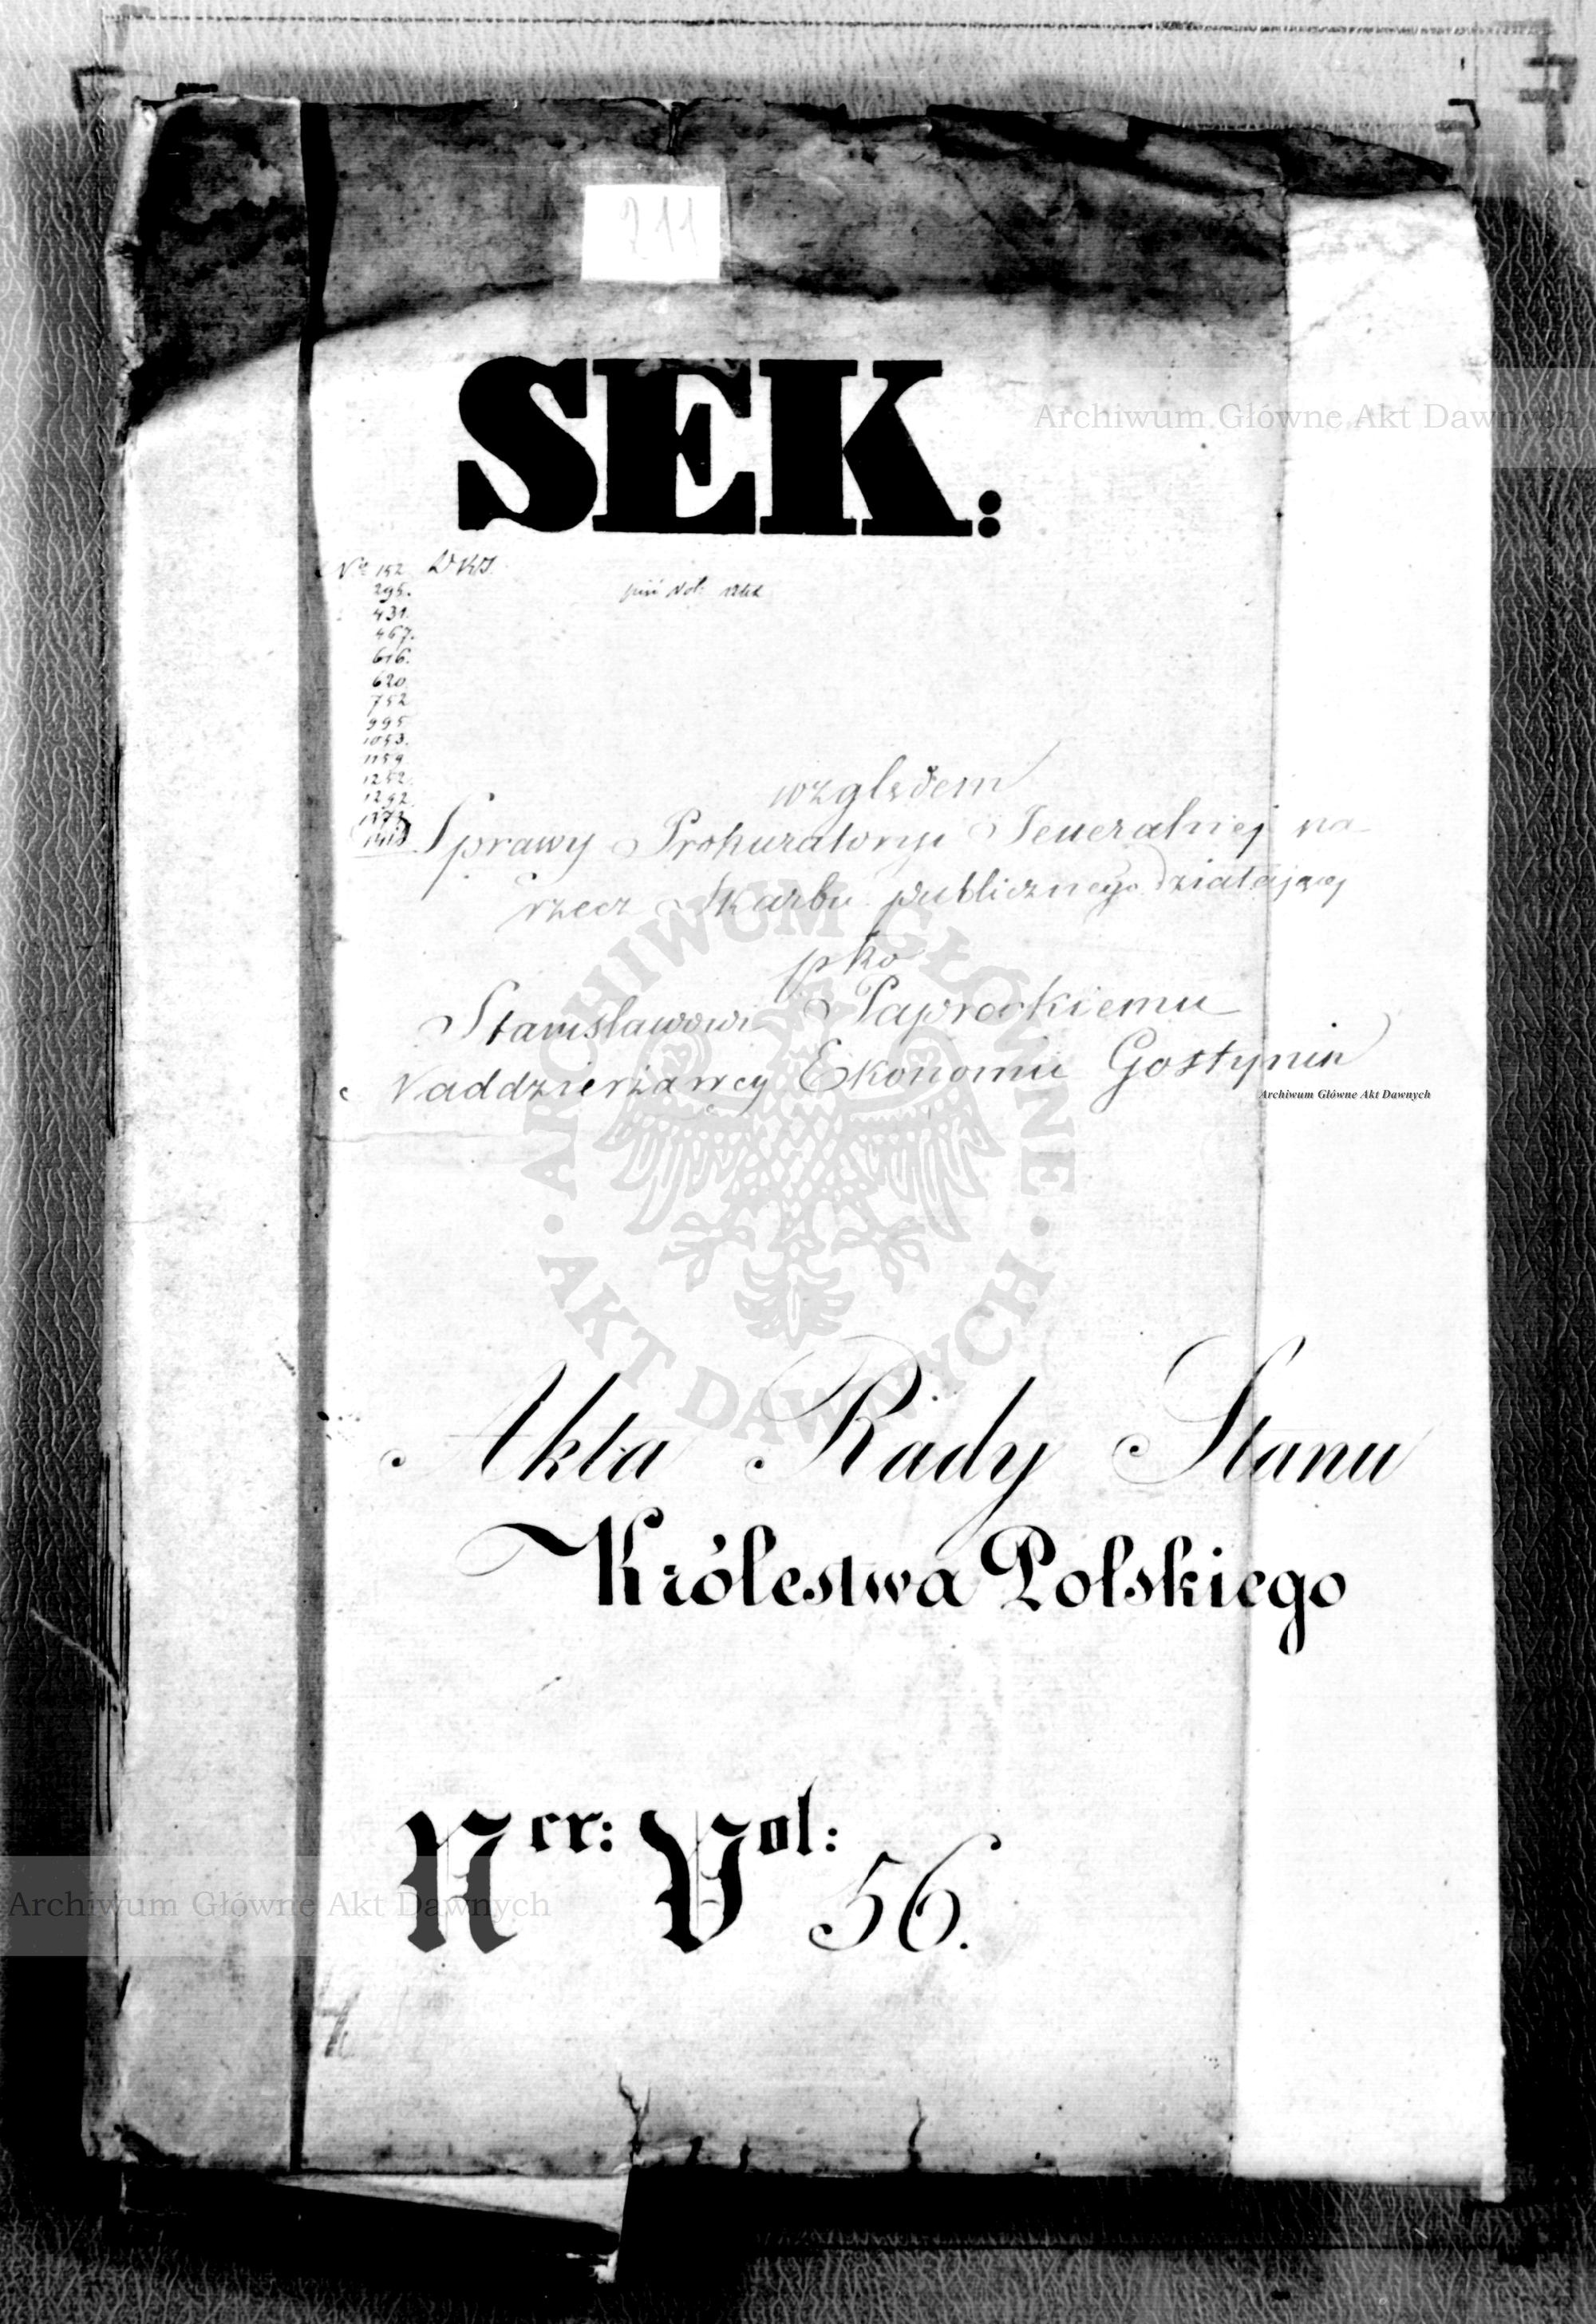 211
SEK:
Nº 152. DKS.
295. piń Vol:
431.
467.
616.
620.
752
995
1053.
1159
1252.
1292.
1373
względem
Sprawy Prokuratoryi Jeneralnej na
rzecz Skarbu publicznego działającej
pko
Stanisławowi Paprockiemu
Naddzierżawcy Ekonomii Gostynin
Akta Rady Stanu
Królestwa Polskiego
Ner: Vol: 56.
Archiwum Główne Akt Dawnych
Archiwum Główne Akt Dawnych
Archiwum Główne Akt Dawnych
ARCHIWUM GŁÓWNE · AKT DAWNYCH ·